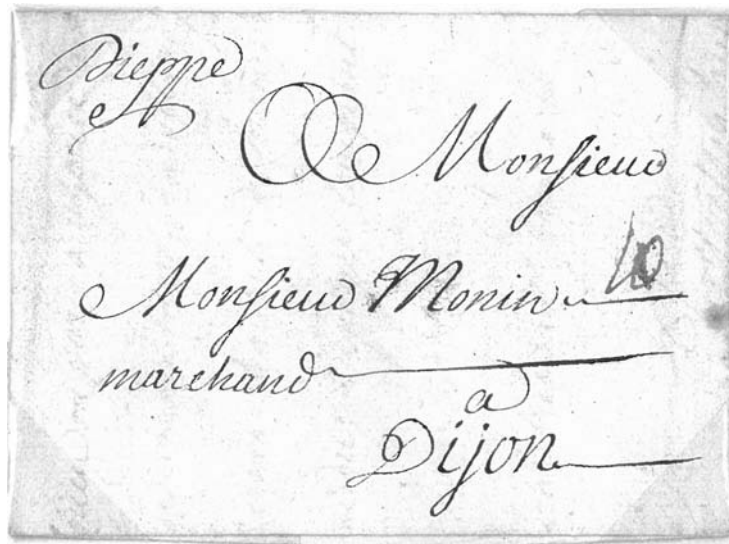 Dieppe
A Monsieur
Monsieur Monin 10
marchand
a
Dijon